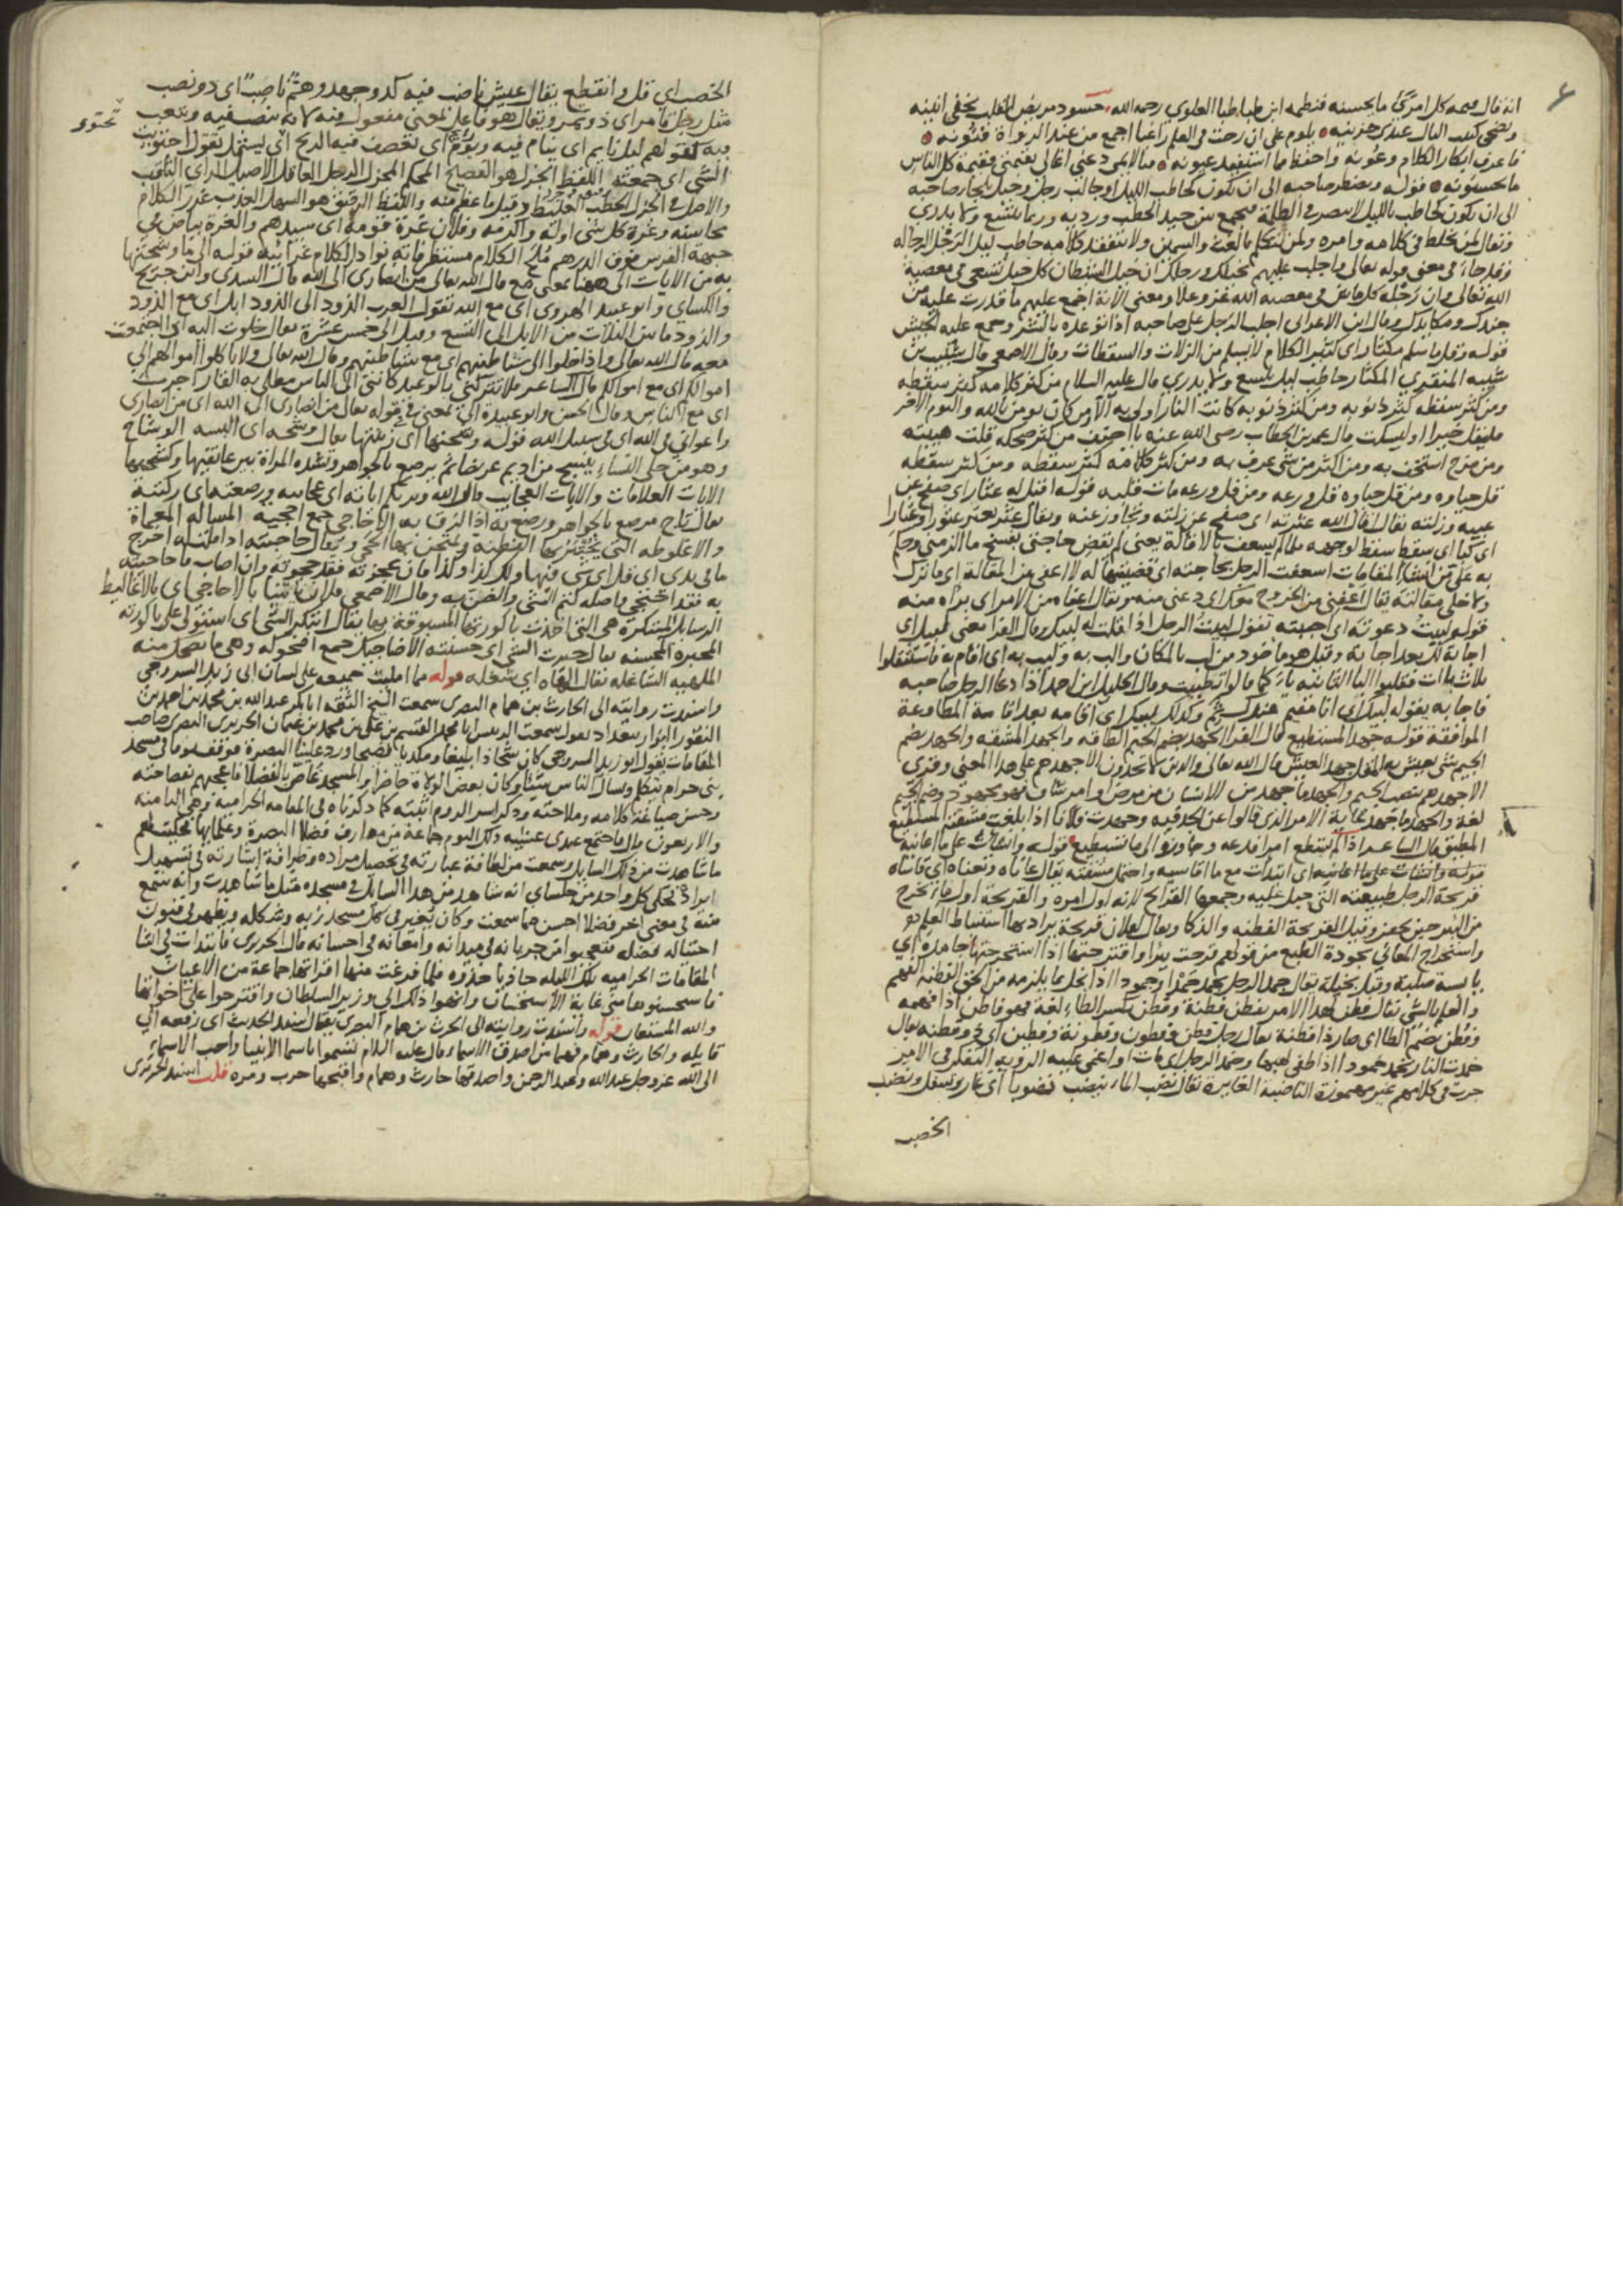 انه قال قيمة كل امرئ ما يحسنه فنظمه ابن طباطبا العلوي رحمه الله حسود مريض القلب يخفي انينه
ويضحي كئيب البال عندي حزينه يلوم على ان رحت في العلم راغبا اجمع من عند الرواة فنونه
فاعرف ابكار الكلام وعونه واحفظ مما استفيد عيونه فيا لائمي دعني اغالي بقيمتي فقيمة كل الناس
ما يحسنونه قوله ويضطر صاحبه الى ان يكون كحاطب الليل او جالب رجل وخيل يجار صاحبه
الى ان يكون كحاطب بالليل لا يبصر في الظلمة فيجمع بين جيد الحطب ورديه وربما يلسع ولا يدري
ويقال لمن يخلط في كلامه وامره ولمن يتكلم بالغث والسمين ولا يتفقد كلامه حاطب ليل الرجل الرجاله
وقد جاء في معنى قوله تعالى واجلب عليهم بخيلك ورجلك ان خيل الشيطان كل خيل تسعى في معصية
الله تعالى وان رجله كل ماش في معصية الله عز وجل ومعنى الاية اجمع عليهم ما قدرت عليه من
جندك ومكايدك وقال ابن الاعرابي اجلب الرجل على صاحبه اذا توعده بالشر وجمع عليه الجيش
قوله وقلما سلم مكثار اي كثير الكلام لا يسلم من الزلات والسقطات وقال الاصمعي قال شبيب بن
شيبه المنقري المكثار حاطب ليل يلسع ولا يدري قال عليه السلام من كثر كلامه كثر سقطه
ومن كثر سقطه كثر ذنوبه ومن كثر ذنوبه كانت النار اولى به الا من كان يومن بالله واليوم الاخر
فليقل خيرا او ليسكت قال عمر بن الخطاب رضي الله عنه يا احنف من كثر ضحكه قلت هيبته
ومن مزح استخف به ومن اكثر من شي عرف به ومن كثر كلامه كثر سقطه ومن كثر سقطه
قل حياوه ومن قل حياوه قل ورعه ومن قل ورعه مات قلبه قوله اقيل له عثار اي صفح عن
عيبه وزلته يقال اقال الله عثرته اي صفح عن زلته وتجاوز عنه ويقال عثر يعثر عثورا وعثارا
اي كبا اي سقط سقط لوجهه فلما لم يسعف بالاقالة يعني لم يقض حاجتي بفسخ ما الزمني وحكم
به علي من انشاء المقامات اسعفت الرجل بحاجته اي قضيتها له لا اعفي من المقالة اي ما ترك
ولا خلى مقالته يقال اعفني من الخروج معك اي دعني منه ويقال اعفاه من الامر اي براه منه
قوله لبيت دعوته اي اجبته تقول لبيت الرجل اذا قلت له لبيك وقال الفرا معنى لبيك اي
اجابة لك بعد اجابة وقيل هو ماخوذ من لب بالمكان والب به ولبب به اي اقام به فاستثقلوا
ثلاث باات فقلبوا البا الثانيه ياء كما قالوا تظنيت وقال الخليل ابن احمد اذا دعا الرجل صاحبه
فاجابه بقوله لبيك اي انا مقيم عندك ثم وكذلك لبيك اي اقامه بعد اقامة المطاوعة
الموافقة قوله جهد المستطيع قال الفرا الجهد بضم الجيم الطاقه والجهد المشقه والجهد بضم
الجيم شي يعيش به المقل جهد العيش قال الله تعالى والذين لا يجدون الا جهدهم على هذا المعنى وقري
الا جهدهم بنصب الجيم والجهد ما جهد من الانسان من مرض وامر شاق فهو مجهود وضم الجيم
لغة والجهد ما جهد بغاية الامر الذي قالوا عن الجد فيه وجهدت فلانا اذا بلغت مشقته المستطيع
المطيق قال الشاعر اذا لم تستطع امرا فدعه وجاوزه الى ما تستطيع قوله وانشات على ما اعانيه
قوله وانشات على ما اعانيه اي ابتدات مع ما اقاسيه واحتمل مشقته يقال عاناه وتعناه اي قاساه
قريحة الرجل طبيعته التي جبل عليه وجمعها القرايح لانه اول امره والقريحة اول ما يخرج
من البئر حين يحفر وقيل القريحة الفطنه والذكا ويقال لفلان قريحة يراد بها استنباط العلم
واستخراج المعاني بجودة الطبع من قولهم قرحت بئرا واقترحتها اذا استخرجتها جامدة اي
يابسة صلبة وقيل بخيلة يقال جمد الرجل يجمد جمدا وجمودا اذا بخل بما يلزمه من الحق الفطنه الفهم
والعلم بالشي يقال فطن لهذا الامر يفطن فطنة وفطن بكسر الطاء لغة فهو فاطن اذا فهمه
وفطن بضم الطا اي صار ذا فطنة يقال رجل فطن وفطون وفطونة وفطين اي ذو فطنه يقال
خمدت النار تخمد خمودا اذا طفي لهبها وخمد الرجل اي مات او اغمي عليه الروية التفكر في الامر
جرت في كلامهم غير مهموزة الناضبه الغايرة يقال نضب الماء ينضب نضوبا اي غار وسفل ونضب
الخصب
الخصب اي قل وانقطع يقال عيش ناصب فيه كد وجهد وهم ناصب اي ذو نصب
مثل رجل تامر اي ذو تمر ويقال هو فاعل بمعنى مفعول فيه لانه ينصب فيه ويتعب
تحتوي
فيه كقولهم ليل نايم اي ينام فيه ويوم اي تعصف فيه الريح اي ليشتمل تقول احتويت
الشي اي جمعته اللفظ الجزل هو الفصيح المحكم الجزل الرجل العاقل الاصيل الراي الثاقب
والاصل في الجزل الحطب الغليظ وقيل ما عظم منه واللفظ الرقيق هو السهل العذب غرر الكلام
محاسنه وغرة كل شي اوله واكرمه وفلان غرة قومه اي سيدهم والغرة بياض في
جبهة الفرس فوق الدرهم ملح الكلام مستظرفاته نوادر الكلام غرائبه قوله الى ما وشحتها
به من الايات الى ههنا بمعنى مع قال الله تعالى من انصاري الى الله قال السدي وابن جريج
والكساي وابو عبيد الهروي اي مع الله تقول العرب الذود الى الذود ابل اي مع الذود
والذود ما بين الثلاث من الابل الى التسع وقيل الى خمس عشرة يقال خلوت اليه اي اجتمعت
معه قال الله تعالى واذا خلوا الى شياطينهم اي مع شياطينهم وقال الله تعالى ولا تاكلوا اموالهم الى
اموالكم اي مع اموالكم قال الشاعر فلا تتركني بالوعيد كانني الى الناس مطلي به القار اجرب
اي مع الناس وقال الحسن وابو عبيدة الى بمعنى في قوله تعالى من انصاري الى الله اي من انصاري
واعواني في الله اي في سبيل الله قوله وشحتها اي زينتها يقال وشحه اي البسه الوشاح
وهو من حلي النساء ينسج من اديم عريضا ثم يرصع بالجواهر وتشده المراة بين عاتقيها وكشحيها
الايات العلامات والايات العجايب قال الله ويريكم اياته اي عجايبه ورصعته اي ركبته
يقال تاج مرصع بالجواهر ورصع به اذا الزق به الاحاجي جمع احجيه المساله المعماة
والاغلوطه التي يختبر بها الفطنه ويمتحن بها الحجى ويقال حاجيته اذا قلت له اخرج
ما في يدي اي قل اي شي فيها ولك كذا وكذا فان عجزته فقد حجوته وان اصاب ما حاجيته
به فقد احتجى واصله كتم الشي والضن به وقال الاصمعي فلان ياتينا بالاحاجي اي بالاغاليط
الرسايل المبتكرة هي التي اخذت باكورتها المسبوقة بها يقال ابتكر الشي اي استولى على باكورته
المحبره المحسنه يقال حبرت الشي اي حسنته الاضاحيك جمع اضحوكه وهي ما يضحك منه
الملهيه الشاغله يقال الهاه اي شغله قوله مما امليت جميعه على لسان ابي زيد السروجي
واسندت روايته الى الحارث بن همام البصري سمعت الشيخ الثقه ابا بكر عبد الله بن محمد بن احمد بن
النقور البزار ببغداد يقول سمعت الريس ابا محمد القسم بن علي بن محمد بن عثمان الحريري البصري صاحب
المقامات يقول ابو زيد السروجي كان شحاذا بليغا ومكديا فصيحا ورد علينا البصرة فوقف يوما في مسجد
بني حرام يتكلم ويسال الناس شيئا وكان بعض الولاة حاضرا والمسجد غاص بالفضلا فاعجبهم فصاحته
وحسن صياغة كلامه وملاحته وذكر اسر الروم ابنته كما ذكرناه في المقامه الحراميه وهي الثامنه
والاربعون قال فاجتمع عندي عشية ذلك اليوم جماعة من معارف فضلا البصرة وعلمايها فحكيت لهم
ما شاهدت من ذلك السايل وسمعت من لطافة عبارته في تحصيل مراده وظرافة اشارته في تسهيل
ايراده فحكى كل واحد من جلساي انه شاهد من هذا السايل في مسجده مثل ما شاهدت وانه سمع
منه في معنى اخر فضلا احسن مما سمعت وكان يغير في كل مسجد زيه وشكله ويظهر في فنون
احتياله فضله فتعجبوا من جريانه في ميدانه وامعانه في احسانه قال الحريري فابتدات في انشا
المقامات الحراميه تلك الليله حاذيا حذوه فلما فرغت منها اقراتها جماعة من الاعيان
فاستحسنوها مني غاية الاستحسان وانهوا ذلك الى وزير السلطان واقترحوا علي اخواتها
والله المستعان قوله واسندت روايته الى الحرث بن همام البصري يقال اسند الحديث اي رفعه الى
قايله والحارث وهمام فهما من اصدق الاسما وقال عليه السلام تسموا باسما الانبيا واحب الاسماء
الى الله عز وجل عبد الله وعبد الرحمن واصدقها حارث وهمام واقبحها حرب ومره قلت اسند الحريري